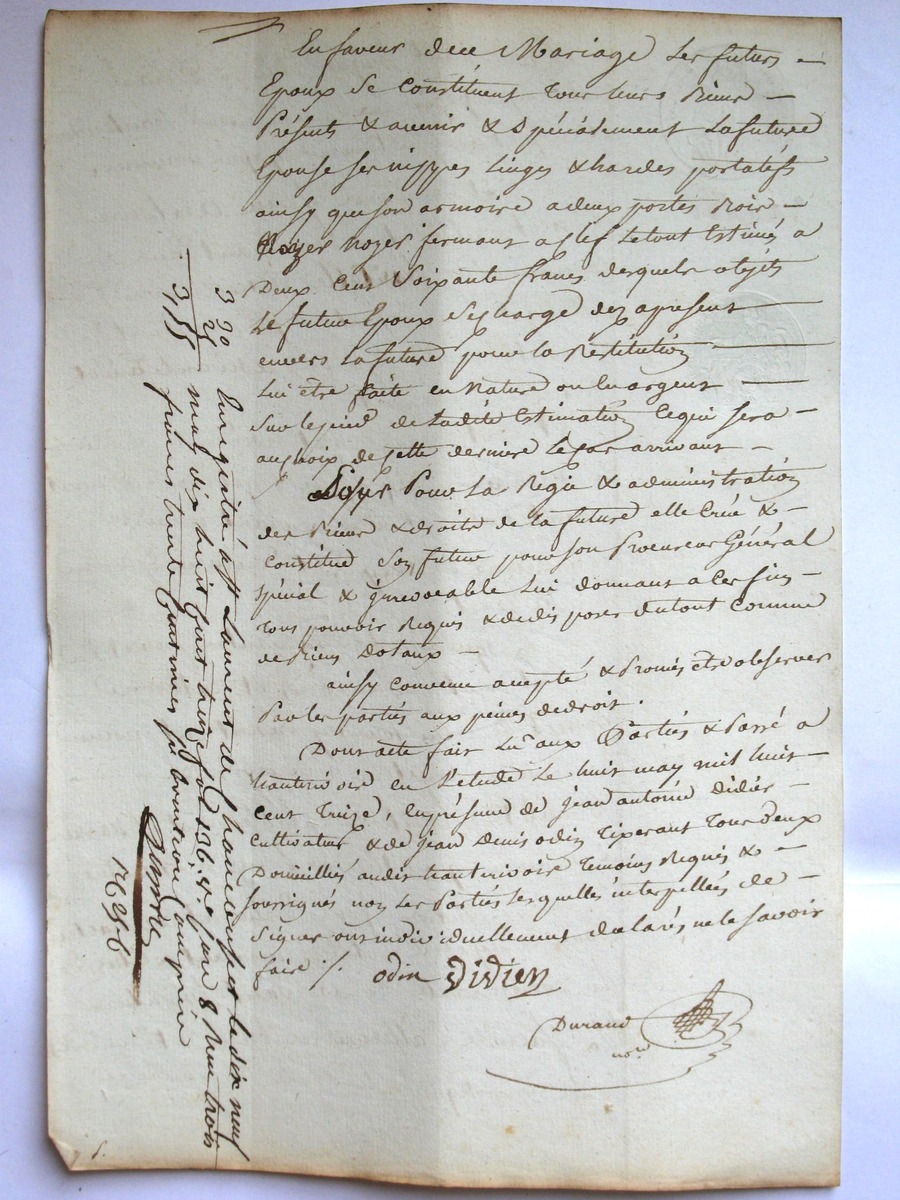 En faveur dece Mariage Les futurs
Epoux se Constituent tous leurs Biens
Présents & avenir & Spécialement La future
Epouse ses nippes Linges & hardes portatifs
ainsy que son armoire a deux portes Bois
noyer fermant a clef Le tout Estimés a
Deux Cent Soixante francs desquels objets
Le futur Epoux Se charge dez a present
envers La future pour La Restitution
Lui être faite en Nature ou En argent
Sur le pied de Ladite Estimation Ce qui sera
au choix de cette derniere le cas arrivant
Pour La Regie & administration
des Biens & droits de la future elle Crée &
Constitue Son futur pour son Procureur Général
spécial & irrevocable Lui donnant a Ces fins
tous pouvoir Requis & de disposer du tout Comme
de Biens Dotaux
ainsy Convenu accepté & Promis etre observer
Par les parties aux peines de droit.
Dont acte fait Lu aux Parties & Passé a
hauterivoire en L'etude Le huit may mil huit
Cent treize, En présence de Jean antoine didier
Cultivateur & de Jean Denis odin tixerant Tous deux
Domiciliés audit hauterivoire temoins Requis &
soussignés non Les Parties lesquelles interpellées de
Signer ont individuellement declarés ne le Savoir
faire ./.
odin Didier
Durand
nore
Enregistré à St Laurent de Chamousset le dix neuf
may dix huit cent treize fol 136. Ve Case 8 Reçu trois
francs trente quatrimes pr donation comprise
3 30
25
3,55